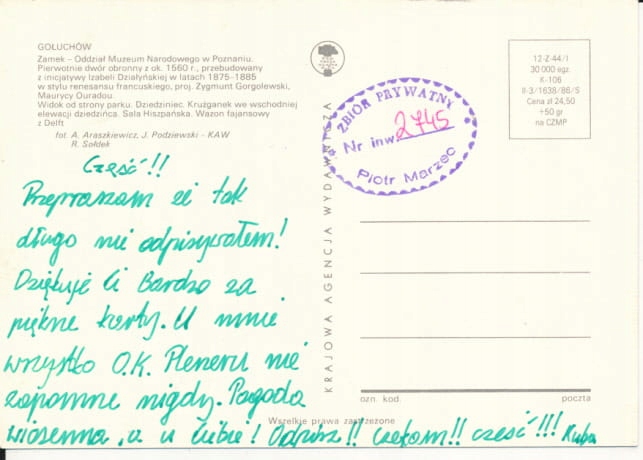 GOŁUCHÓW
Zamek – Oddział Muzeum Narodowego w Poznaniu.
Pierwotnie dwór obronny z ok. 1560 r., przebudowany
z inicjatywy Izabeli Działyńskiej w latach 1875–1885
w stylu renesansu francuskiego, proj. Zygmunt Gorgolewski,
Maurycy Ouradou.
Widok od strony parku. Dziedziniec. Krużganek we wschodniej
elewacji dziedzińca. Sala Hiszpańska. Wazon fajansowy
z Delft
fot. A. Araszkiewicz, J. Podziewski - KAW
R. Sołdek
Cześć!!
Przepraszam że tak
długo nie odpisywałem!
Dziękuję Ci Bardzo za
piękne karty. U mnie
wszystko O.K. Pleneru nie
zapomnę nigdy. Pogoda
wiosenna, a u Ciebie! Odpisz!! Czekam!! cześć!!! Kuba
Wszelkie prawa zastrzeżone
KRAJOWA AGENCJA WYDAWNICZA
ZBIÓR PRYWATNY
Nr inw. 2745
Piotr Marzec
12-Z-44/I
30 000 egz.
K-106
II-3/1638/86/S
Cena zł 24,50
+50 gr
na CZMP
ozn. kod.
poczta